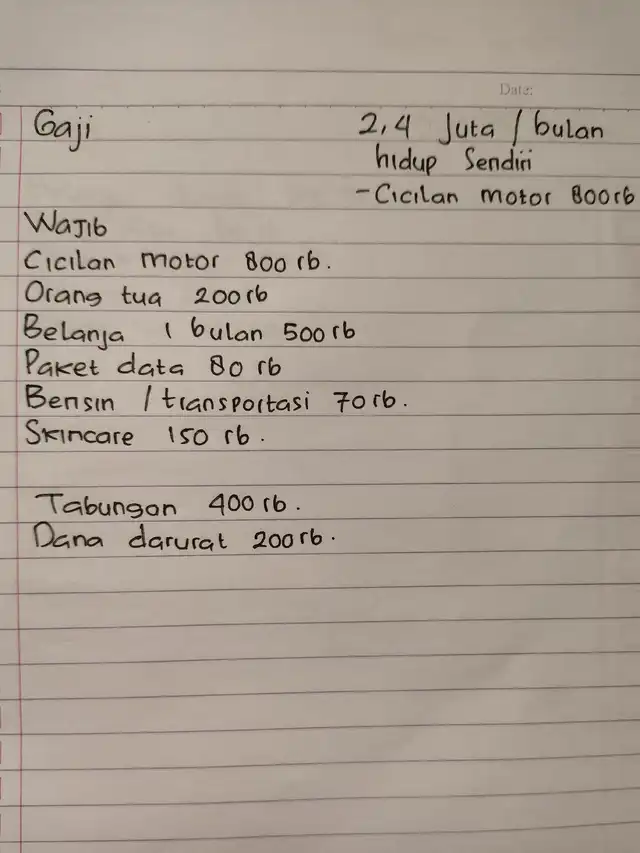 Date:
Gaji 2,4 Juta / bulan
hidup Sendiri
- Cicilan motor 800rb
Wajib
Cicilan motor 800 rb.
Orang tua 200rb
Belanja 1 bulan 500rb
Paket data 80 rb
Bensin / transportasi 70rb.
Skincare 150 rb.
Tabungan 400rb.
Dana darurat 200rb.